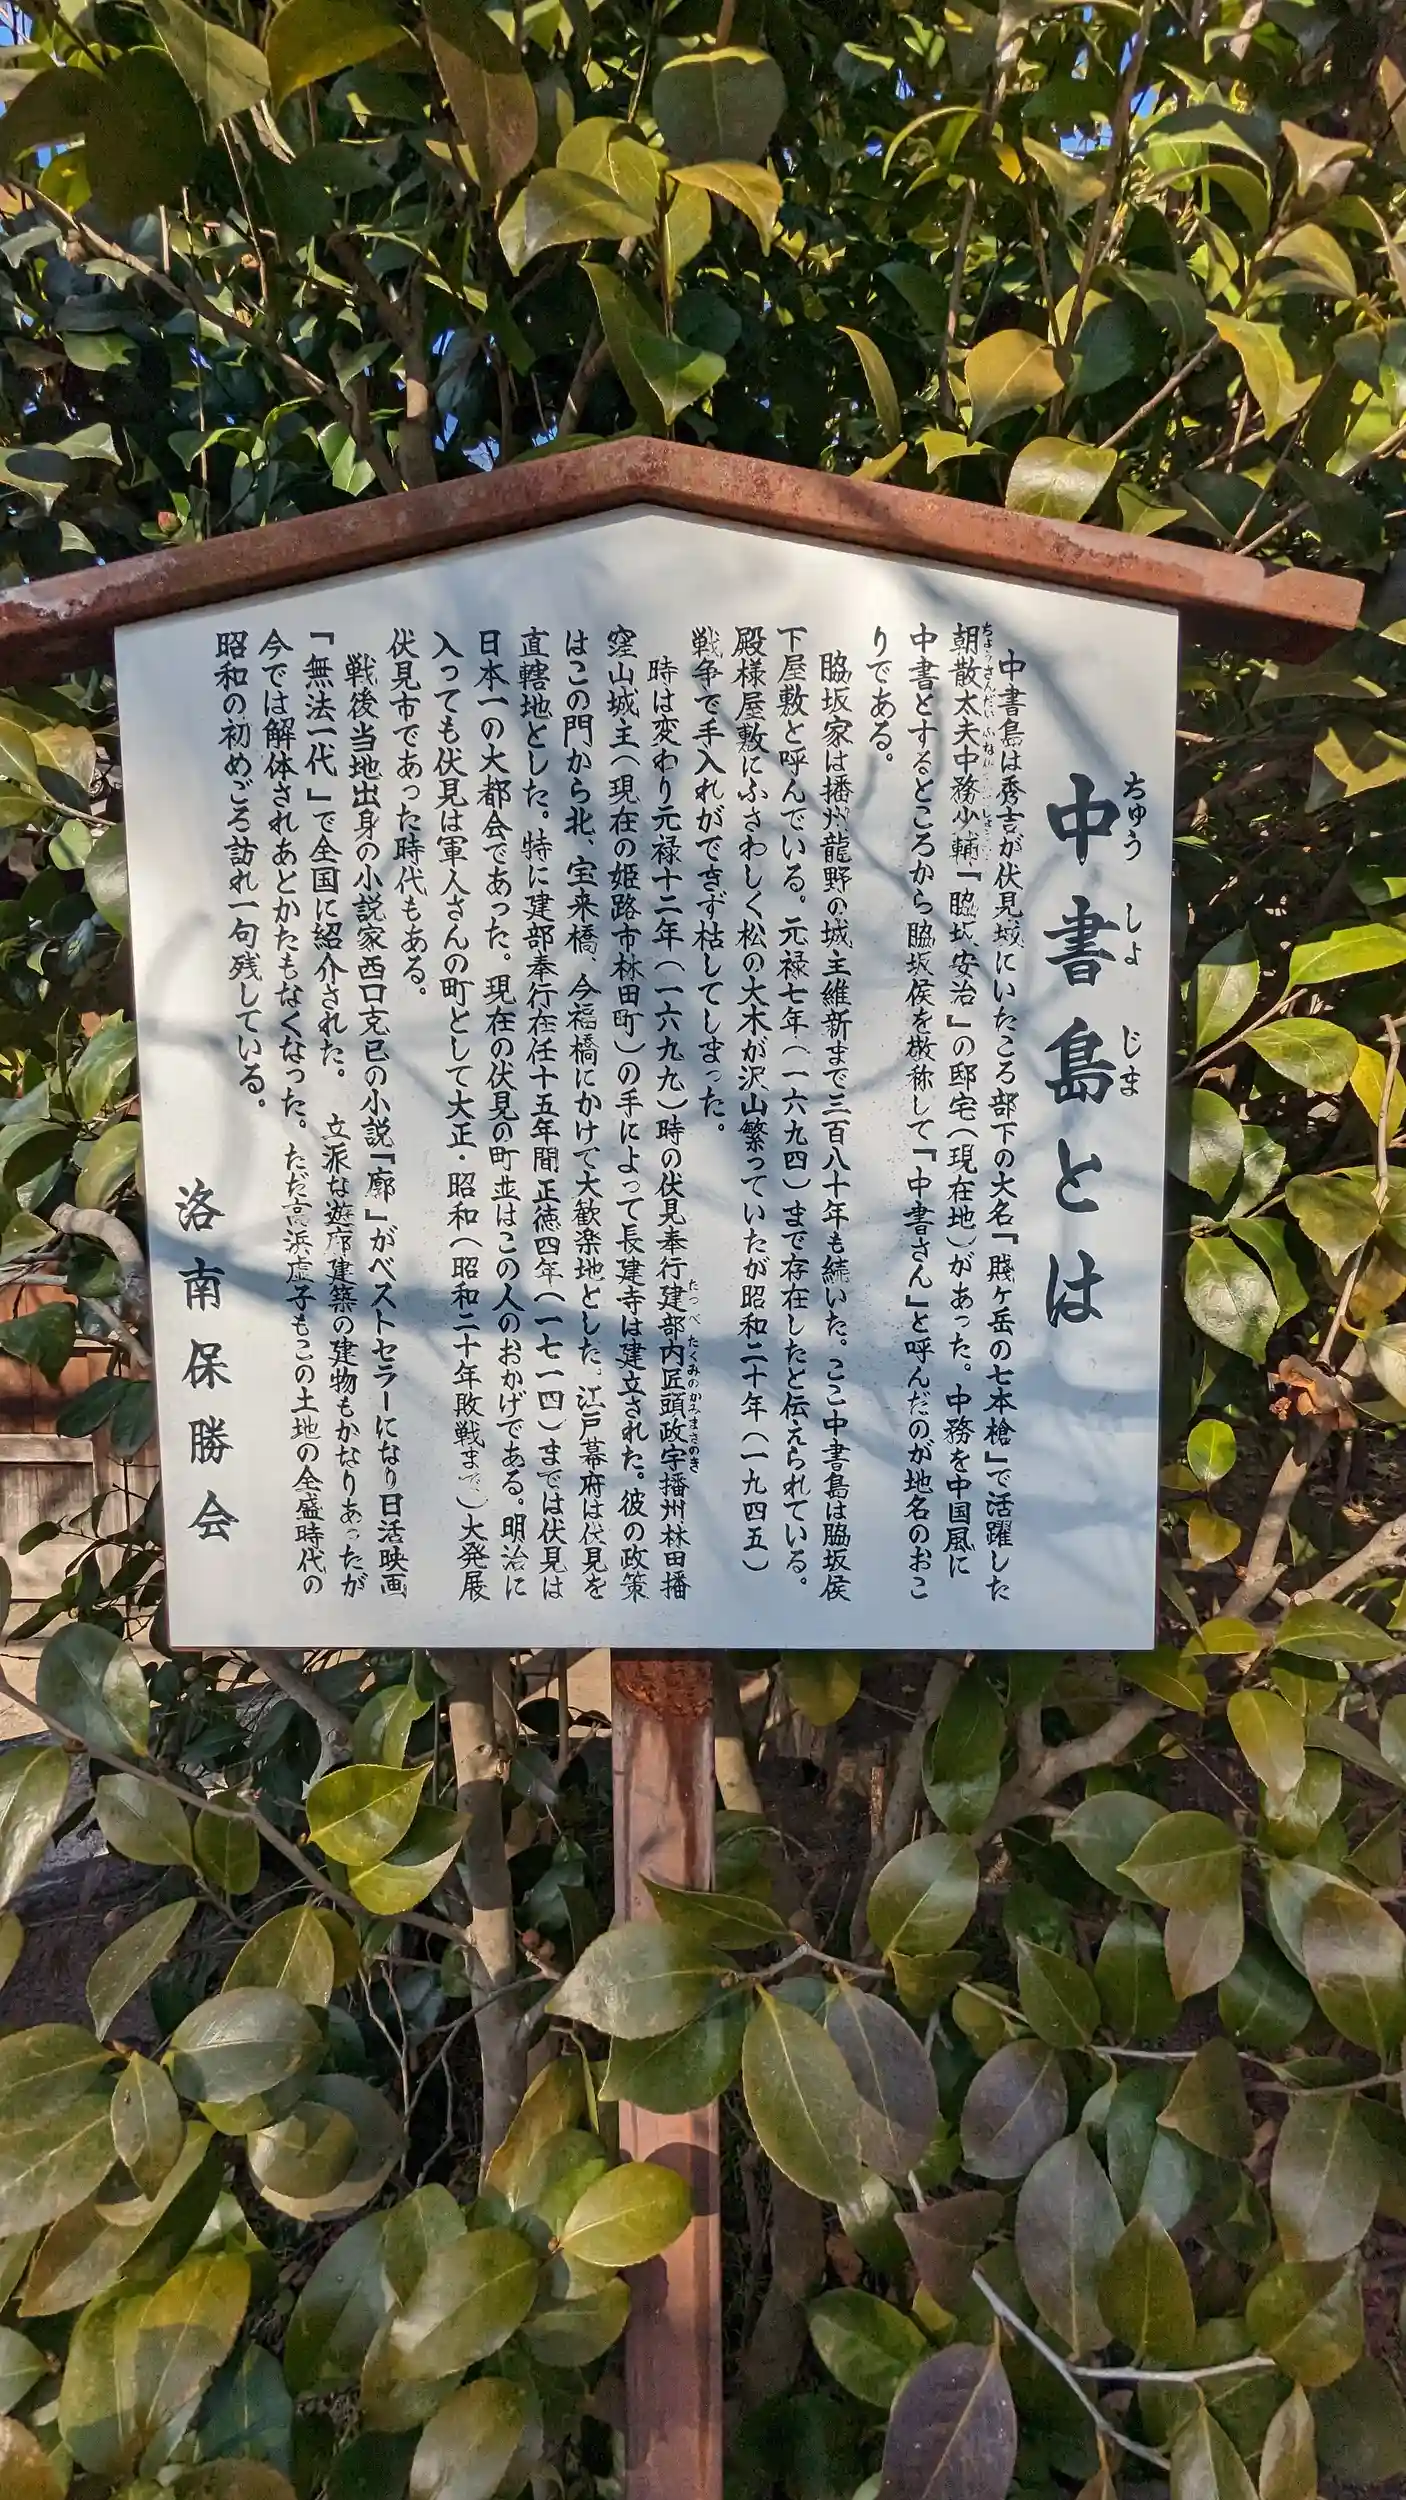 中書島とは
ちゅうしょじま
中書島は秀吉が伏見城にいたころ部下の大名『賤ヶ岳の七本槍』で活躍した
朝散太夫中務少輔『脇坂安治』の邸宅(現在地)があった。中務を中国風に
中書とするところから脇坂侯を敬称して『中書さん』と呼んだのが地名のおこ
りである。
脇坂家は播州龍野の城主維新まで三百八十年も続いた。ここ中書島は脇坂侯
下屋敷と呼んでいる。元禄七年(一六九四)まで存在したと伝えられている。
殿様屋敷にふさわしく松の大木が沢山繁っていたが昭和二十年(一九四五)
戦争で手入れができず枯してしまった。
時は変わり元禄十二年(一六九九)時の伏見奉行建部内匠頭政宇播州林田播
たつべ たくみのかみまさのき
窪山城主(現在の姫路市林田町)の手によって長建寺は建立された。彼の政策
はこの門から北、宝来橋、今福橋にかけて大歓楽地とした。江戸幕府は伏見を
直轄地とした。特に建部奉行在任十五年間正徳四年(一七一四)までは伏見は
日本一の大都会であった。現在の伏見の町並はこの人のおかげである。明治に
入っても伏見は軍人さんの町として大正・昭和(昭和二十年敗戦まで)大発展
伏見市であった時代もある。
戦後当地出身の小説家西口克己の小説『廓』がベストセラーになり日活映画
「無法一代」で全国に紹介された。 立派な遊廓建築の建物もかなりあったが
今では解体されあとかたもなくなった。ただ高浜虚子もこの土地の全盛時代の
昭和の初めごろ訪れ一句残している。
洛南保勝会